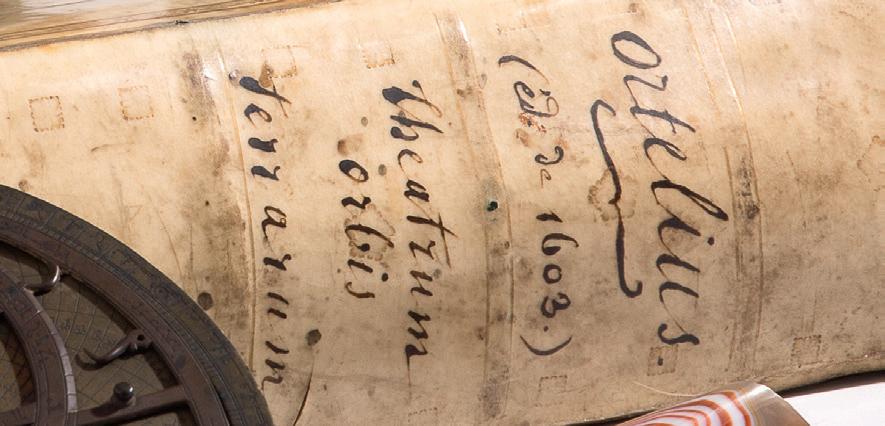 Ortelius.
(éd. de 1603.)
theatrum
orbis
terrarum